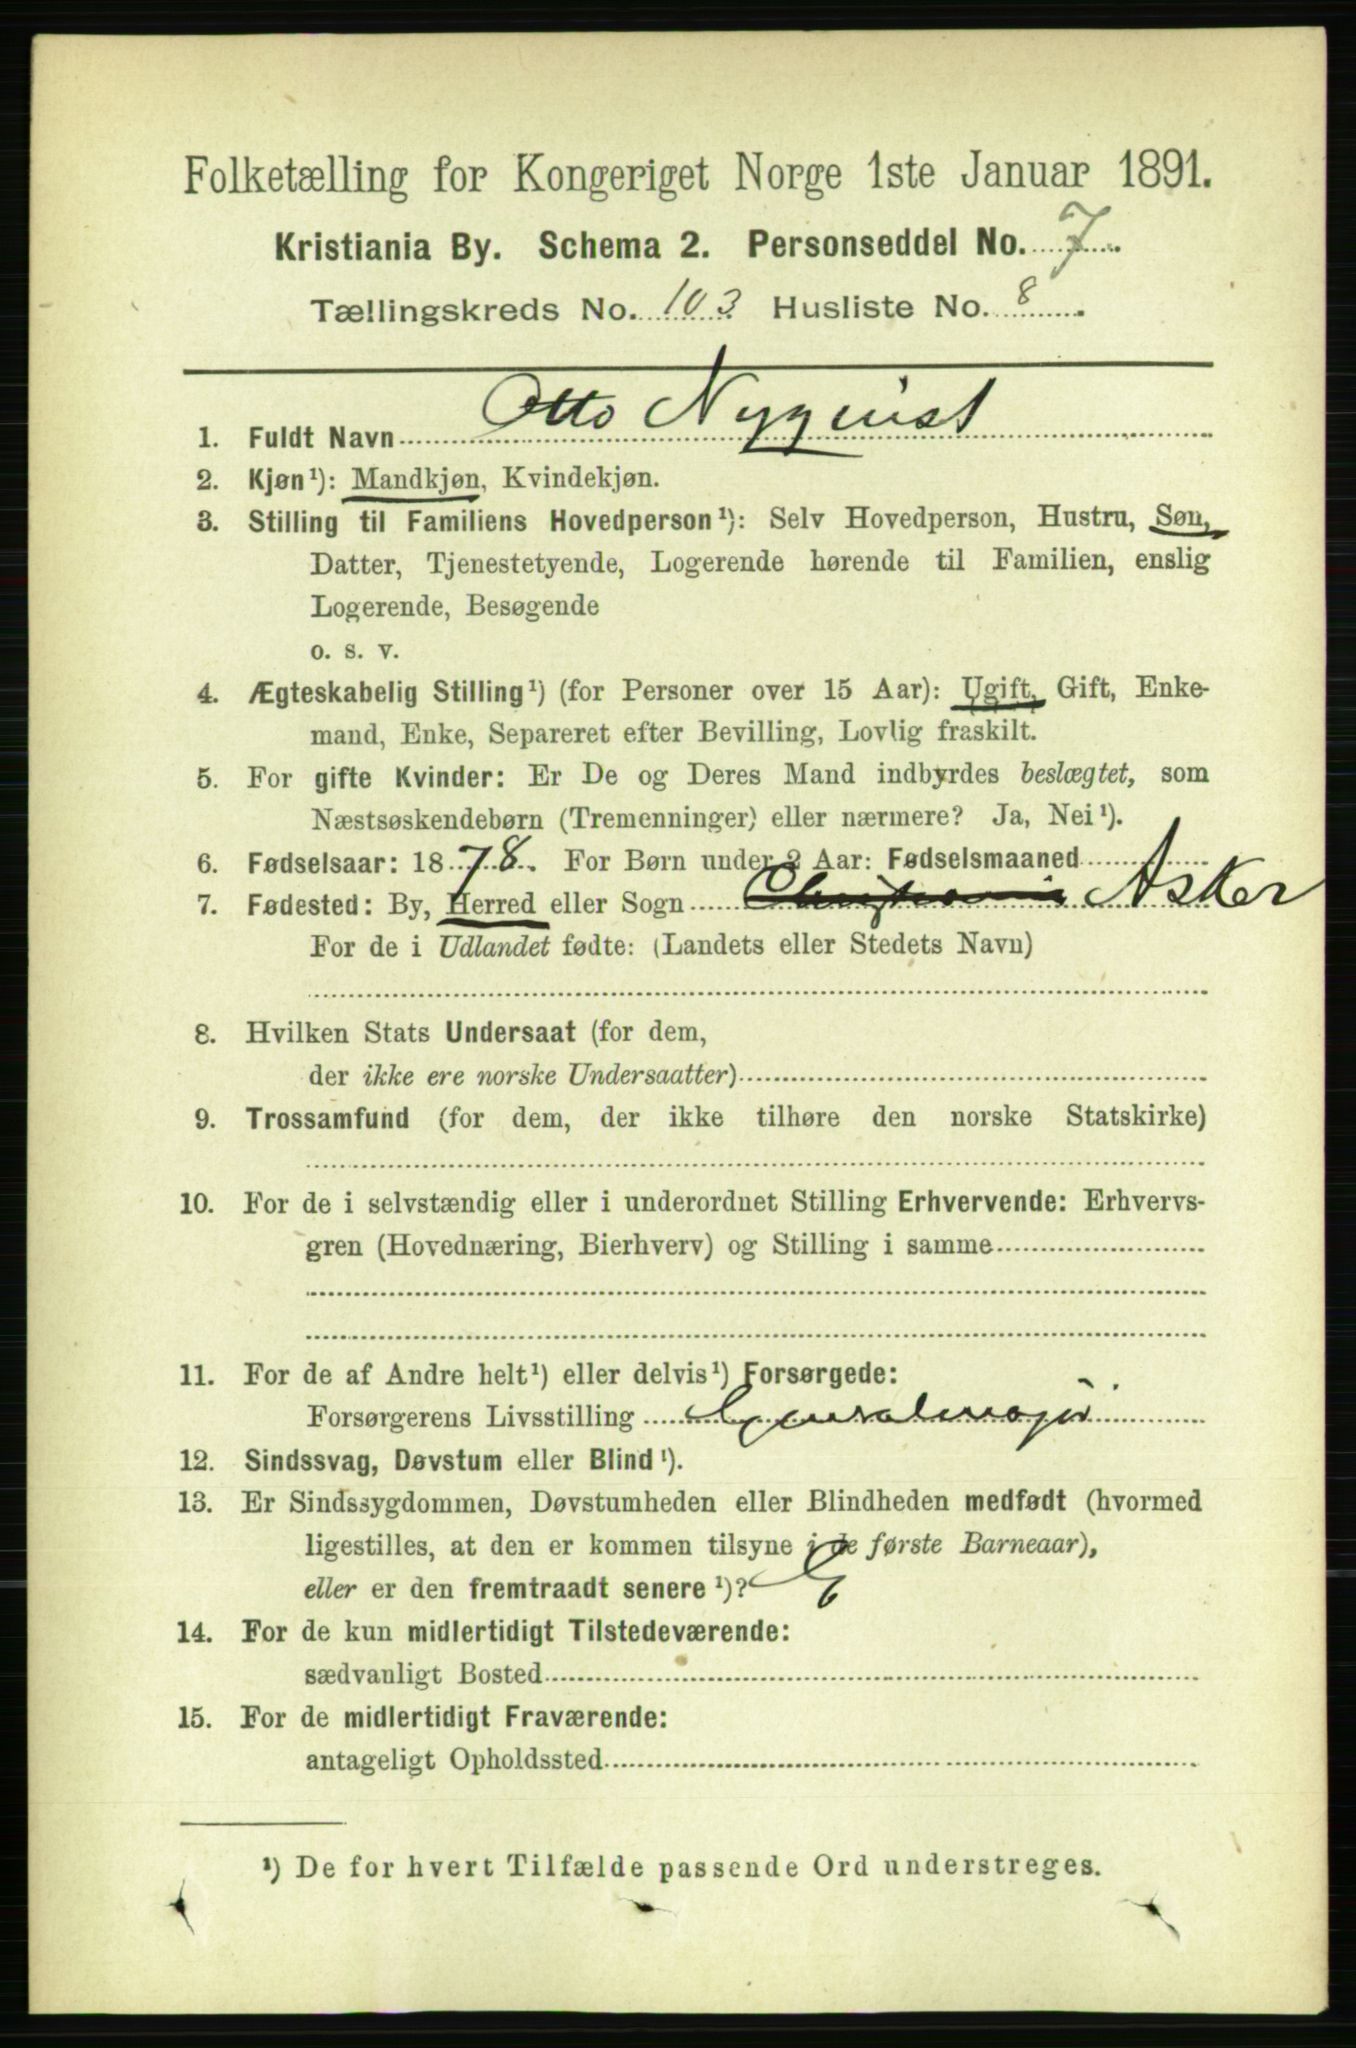 Folketælling for Kongeriget Norge 1ste Januar 1891.
Kristiania By. Schema 2. Personseddel No. 7.
Tællingskreds No. 103 Husliste No. 8.
1. Fuldt Navn Otto Nyqvist
2. Kjøn¹): Mandkjøn, Kvindekjøn.
3. Stilling til Familiens Hovedperson¹): Selv Hovedperson, Hustru, Søn,
Datter, Tjenestetyende, Logerende hørende til Familien, enslig
Logerende, Besøgende
o. s. v.
4. Ægteskabelig Stilling¹) (for Personer over 15 Aar): Ugift, Gift, Enke-
mand, Enke, Separeret efter Bevilling, Lovlig fraskilt.
5. For gifte Kvinder: Er De og Deres Mand indbyrdes beslægtet, som
Næstsøskendebørn (Tremenninger) eller nærmere? Ja, Nei¹).
6. Fødselsaar: 1878. For Børn under 2 Aar: Fødselsmaaned
7. Fødested: By, Herred eller Sogn Christiania Asker
For de i Udlandet fødte: (Landets eller Stedets Navn)
8. Hvilken Stats Undersaat (for dem,
der ikke ere norske Undersaatter)
9. Trossamfund (for dem, der ikke tilhøre den norske Statskirke)
10. For de i selvstændig eller i underordnet Stilling Erhvervende: Erhvervs-
gren (Hovednæring, Bierhverv) og Stilling i samme
11. For de af Andre helt¹) eller delvis¹) Forsørgede:
Forsørgerens Livsstilling Generalmajor
12. Sindssvag, Døvstum eller Blind¹).
13. Er Sindssygdommen, Døvstumheden eller Blindheden medfødt (hvormed
ligestilles, at den er kommen tilsyne i de første Barneaar),
eller er den fremtraadt senere¹)?
14. For de kun midlertidigt Tilstedeværende:
sædvanligt Bosted
15. For de midlertidigt Fraværende:
antageligt Opholdssted
¹) De for hvert Tilfælde passende Ord understreges.